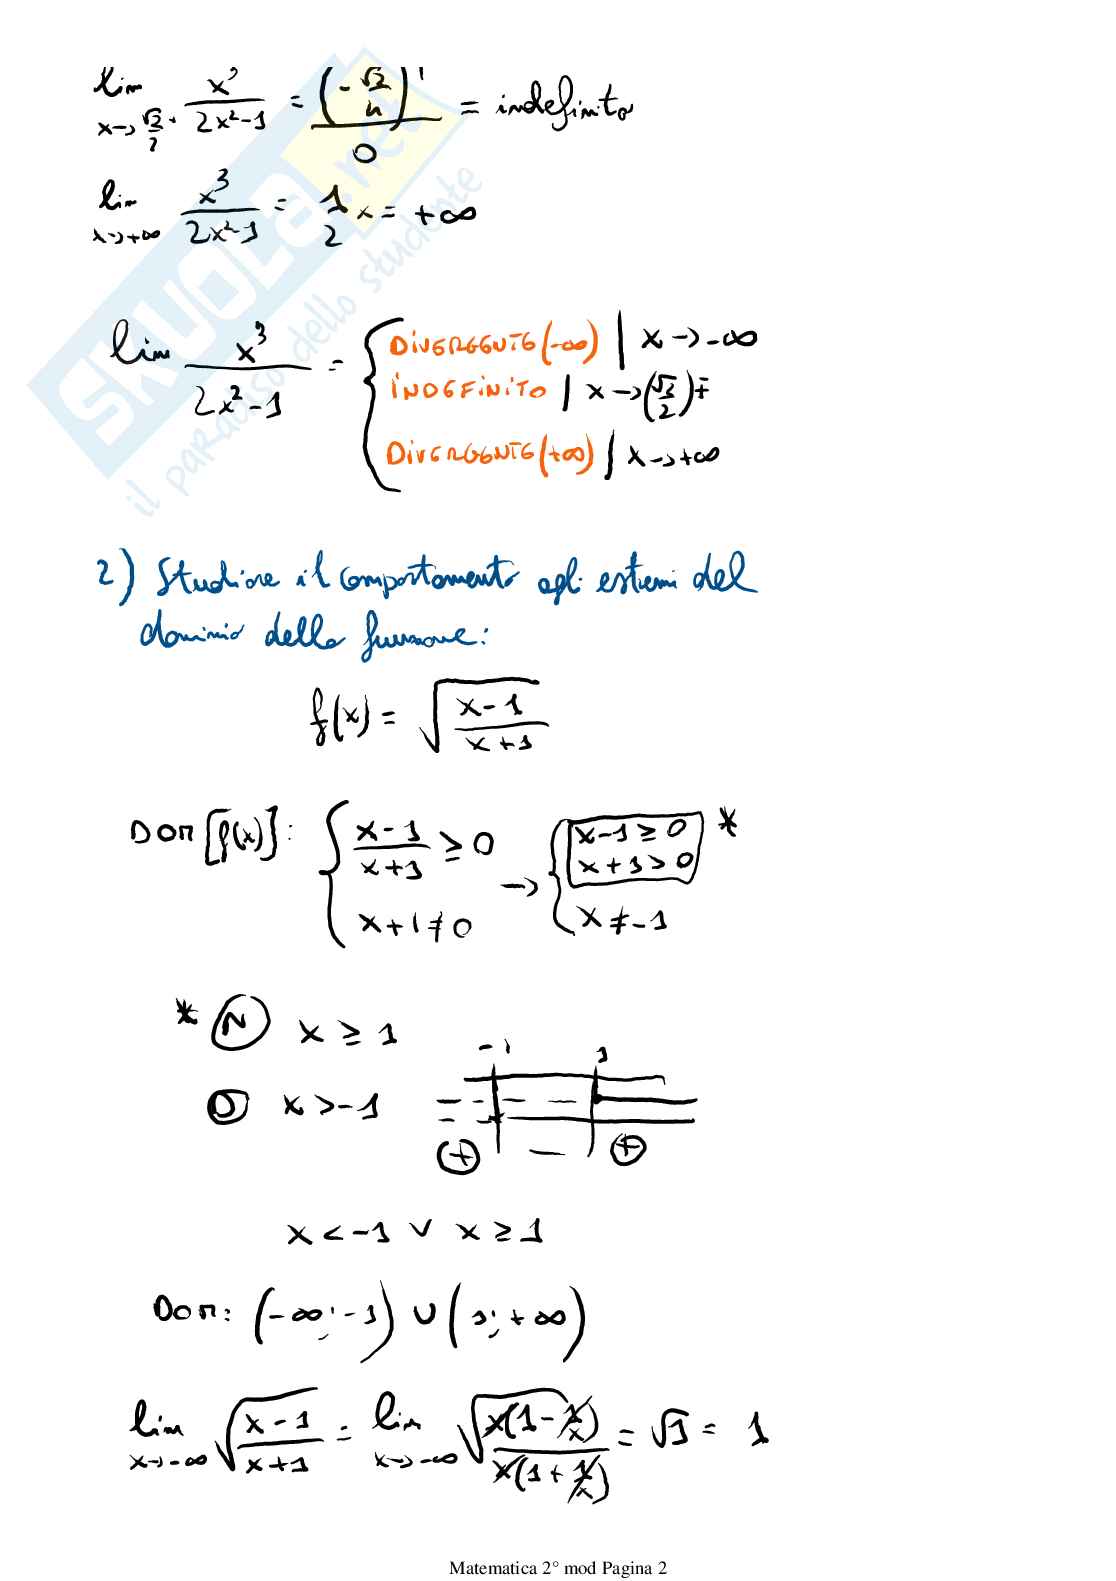 lim x→√2/2⁺ x³/(2x²-1) = (-√2/4)/0 = indefinito
lim x→+∞ x³/(2x²-1) = 1/2 x = +∞
SKUOLA.net
il paradiso dello studente
lim x³/(2x²-1) = { DIVERGENTE (-∞) | x→-∞
INDEFINITO | x→(√2/2)∓
DIVERGENTE (+∞) | x→+∞
2) Studiare il comportamento agli estremi del
dominio della funzione:
f(x) = √((x-1)/(x+1))
DOM [f(x)]: { (x-1)/(x+1) ≥ 0 → { x-1 ≥ 0 *
x+1 > 0
x+1 ≠ 0 x ≠ -1
* N x ≥ 1
-1 1
D x > -1
+ − +
x < -1 ∨ x ≥ 1
DOM: (-∞; -1) ∪ (1; +∞)
lim x→-∞ √((x-1)/(x+1)) = lim x→-∞ √(x(1-1/x)/x(1+1/x)) = √1 = 1
Matematica 2° mod Pagina 2